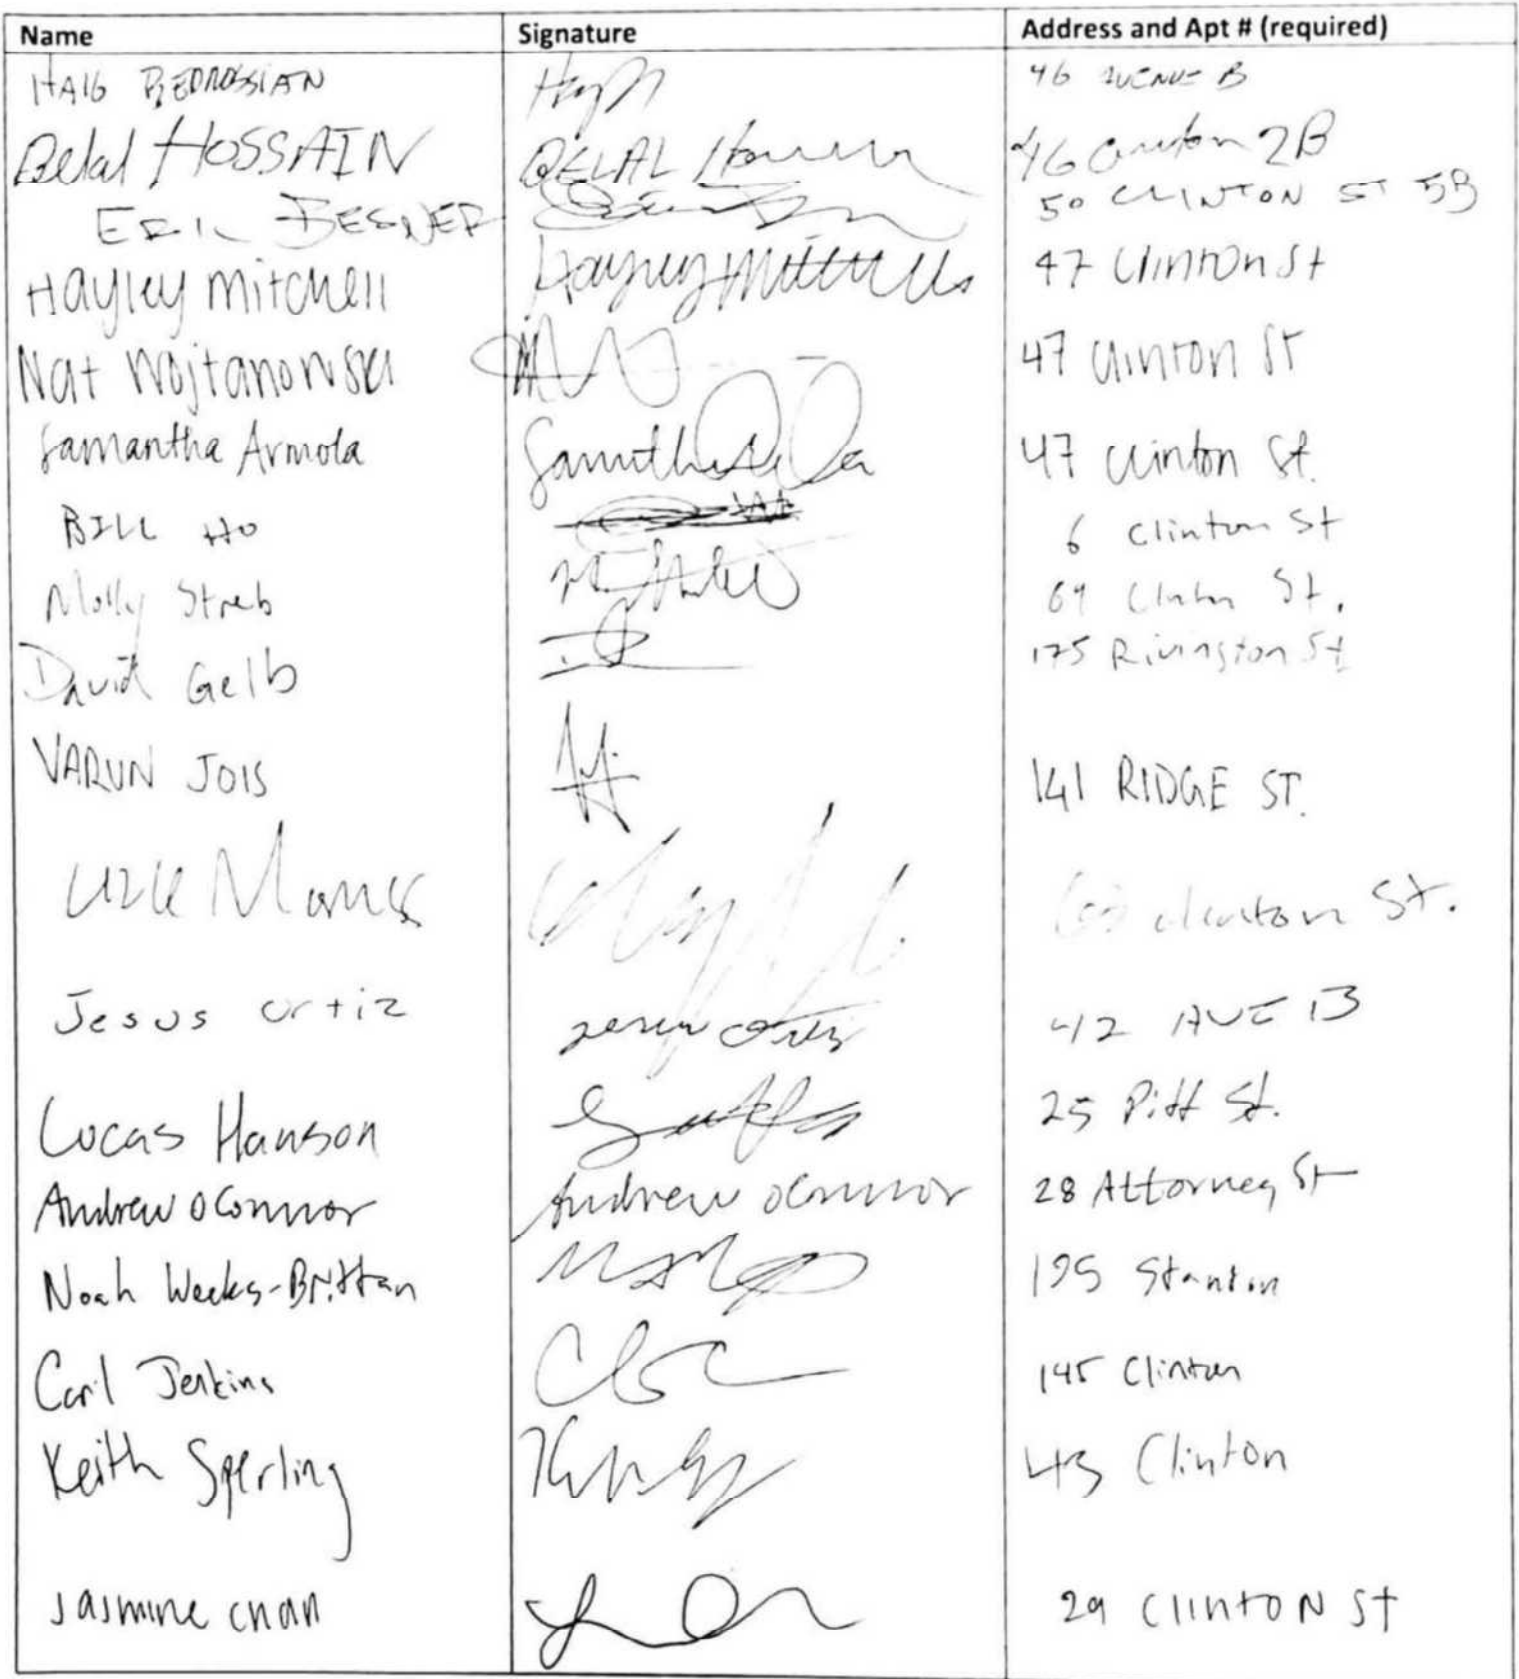 Name Signature Address and Apt # (required)
HAIG BEDROSSIAN 46 AVENUE B
Belal HOSSAIN BELAL 46 Clinton 2B
ERIK BESNER 50 CLINTON ST 5B
Hayley Mitchell Hayley Mitchell 47 Clinton St
Nat Wojtanowski 47 Clinton St
Samantha Armola 47 Clinton St.
BILL HO 6 Clinton St
Molly Streb 69 Clinton St.
David Gelb 175 Rivington St
VARUN JOIS 141 RIDGE ST.
Clinton St.
Jesus Ortiz Jesus Ortiz 42 AVE B
Lucas Hanson 25 Pitt St.
Andrew OConnor Andrew OConnor 28 Attorney St
Noah Weeks-Brittan 195 Stanton
Carl Jenkins 145 Clinton
Keith Sperling 43 Clinton
Jasmine Chan 29 Clinton St